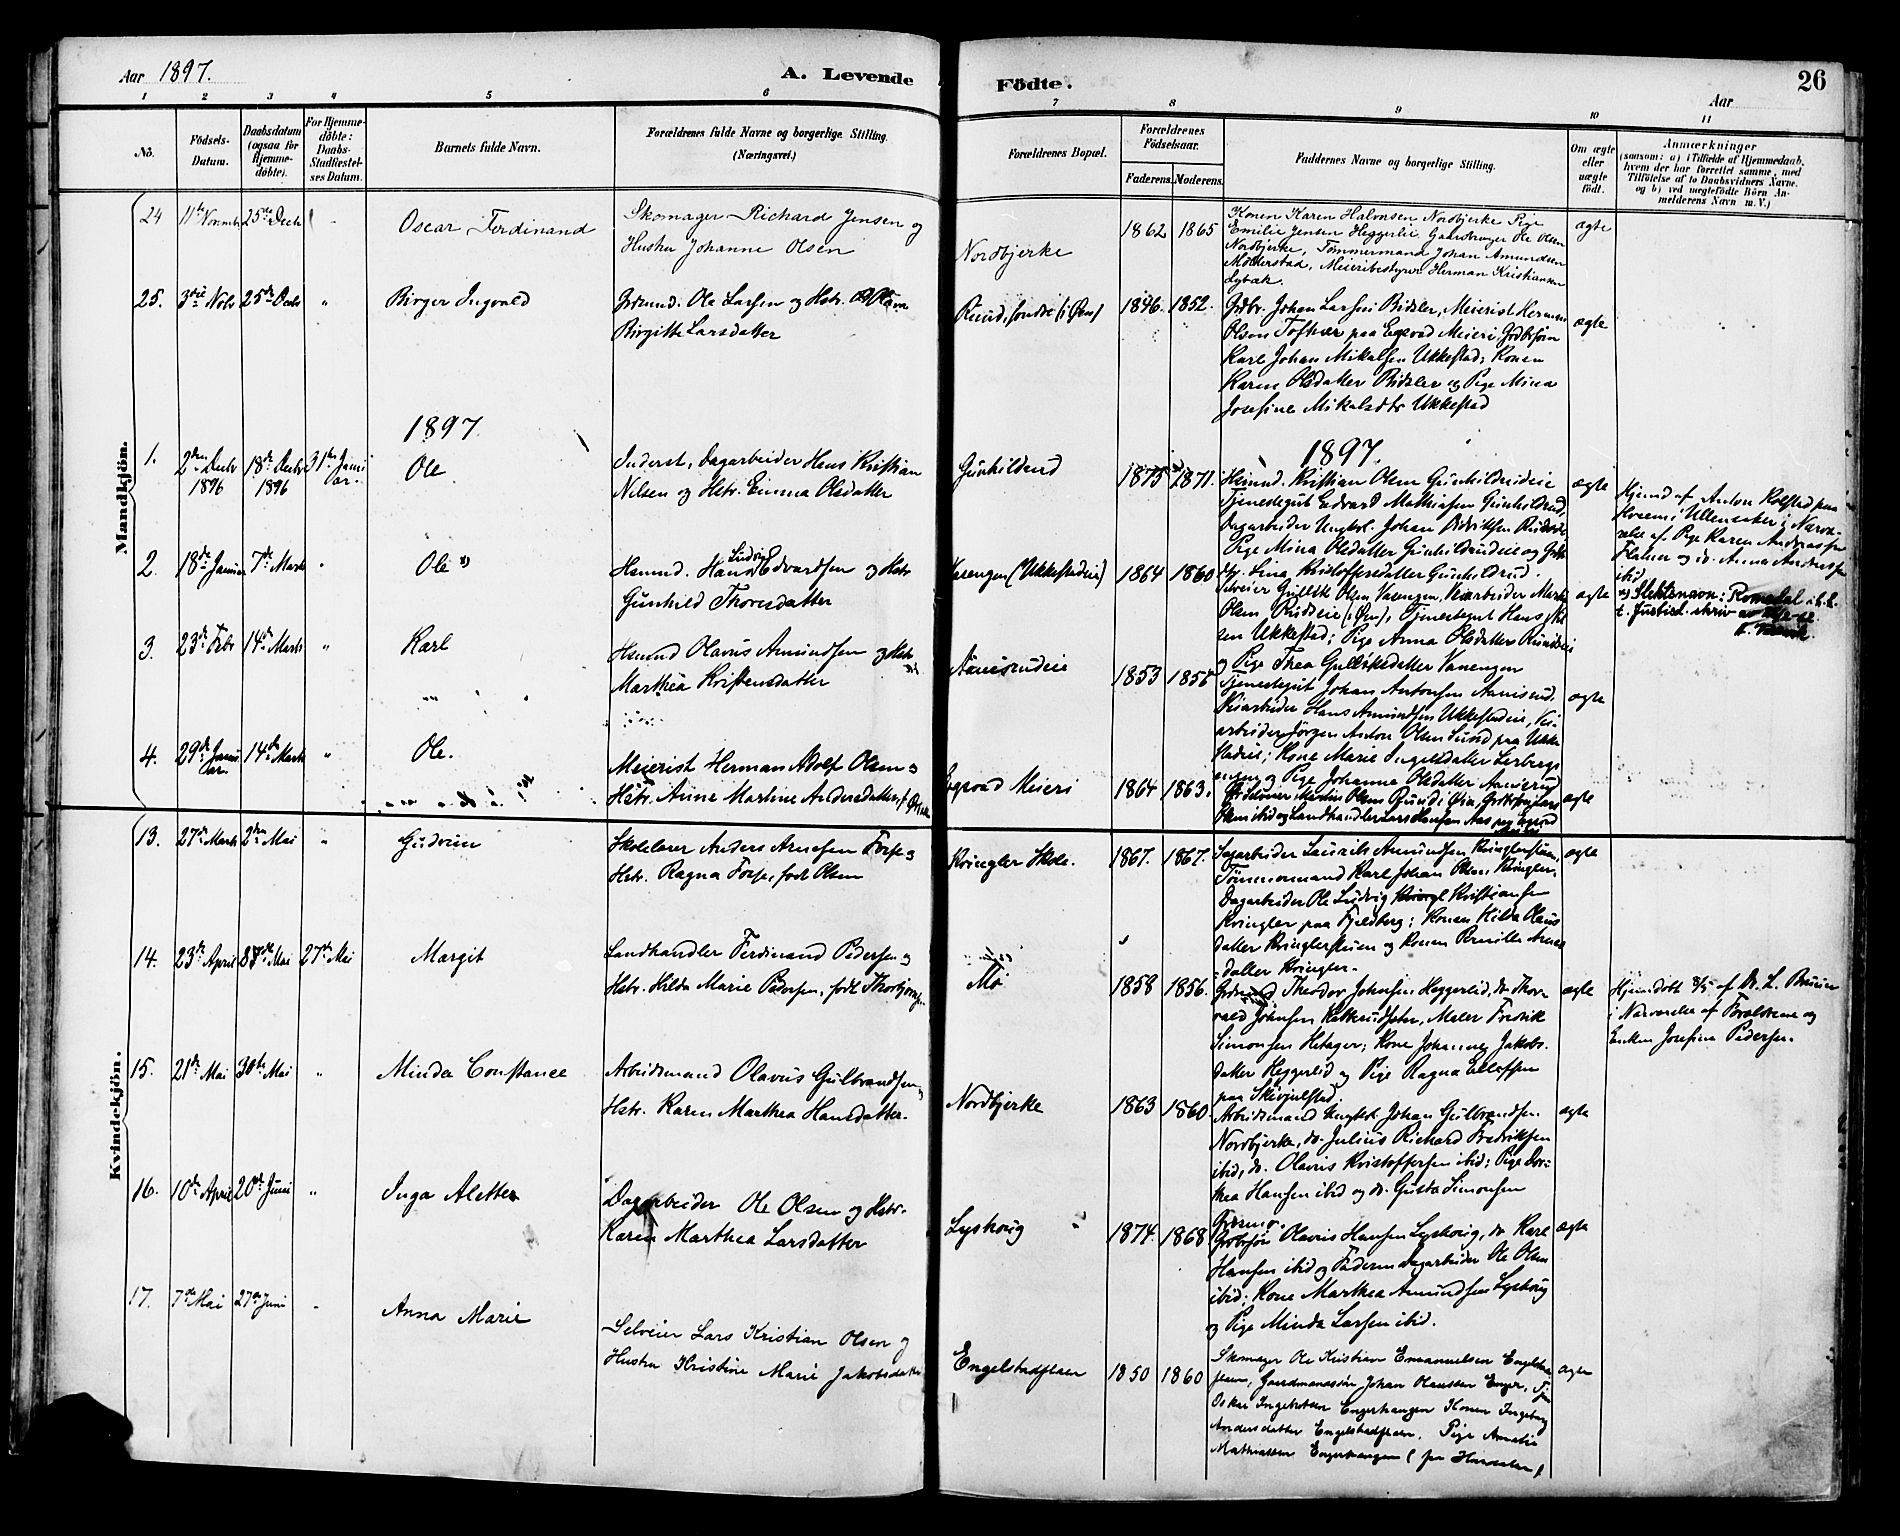 Aar 1897.
A. Levende
Födte.
Aar
26
1 2 3 4 5 6 7 8 9 10 11
No.
Födsels-
Datum.
Daabsdatum
(ogsaa for
Hjemme-
döbte).
For Hjemme-
döbte:
Daabs-
Stadfæstel-
ses Datum.
Barnets fulde Navn.
Forældrenes fulde Navne og borgerlige Stilling.
(Næringsvei.)
Forældrenes Bopæl.
Forældrenes
Födselsaar.
Faderens. Moderens.
Faddernes Navne og borgerlige Stilling.
Om ægte
eller
uægte
födt.
Anmærkninger
(saasom: a) i Tilfælde af Hjemmedaab,
hvem der har forrettet samme, med
Tilföielse af to Daabsvidners Navne.
og b) ved uægtefödte Börn An-
melderens Navn m. V.)
Mandkjön.
24 11te Novembr 25de Decbr
Oscar Ferdinand
Skomager Richard Jensen og
Hustru Johanne Olsen
Nordbjerke
1862 1865
Konen Karen Halvorsen Nordbjerke Pige
Emilie Jensen Heggerlie, Gaardbruger Ole Olsen
Nordbjerke, Tømmermand Johan Amundsen
Meieribestyrer Herman Kristiansen
ægte
25. 3die Novbr 25de Decbr "
Birger Ingvald
Ole Larsen og Hstr.
Birgitte Larsdatter
Ruud, søndre (i Øen)
1846. 1852.
Grdbr. Johan Larsen Meierist Herman
Olsen paa Egsvad Meieri,
Karl Johan Mikalsen Ukkestad; Konen
Karen Olsdatter og Pige Mina
Josefine Mikalsdtr Ukkestad
ægte
1897.
1897.
1. 2den Decbr 1896 18de Decbr 1896 31te Januar
Ole
Inderst, Dagarbeider Hans Kristian
Nilsen og Hstr. Emma Olsdatter
Gunhildrud
1875 1871.
Kristian Olsen Gunhildrudeie
Tjenestegut Edvard Mathiasen Gunhildrud,
Dagarbeider Ungkrl. Johan
Pige Mina Olsdatter Gunhildrudeie og
Lina Kristoffersdatter Gunhildrud.
ægte
Hjemd. af Anton Kolstad paa
i Ullensaker i Nærvæ-
relse af Pige Karen
og do. Anna
ibid
2. 18de Januar 7de Marts "
Ole x)
Hsmnd. Hans Ludvig Edvardsen og Hstr
Gunhild Thoresdatter
(Ukkestadeie)
1864 1860
Selveier Gullik Olsen Vanengen, Veiarbeider Martin
Olsen (i Øen), Tjenestegut Hans
Ukkestad; Pige Anna Olsdatter
og Pige Thea Gulliksdatter Vanengen
ægte
x) Slektsnavn: Romsdal
3. 23de Febr 14de Marts "
Karl
Hsmnd Olavus Amundsen og Hstr
Marthea Kristensdatter
1853 1855
Tjenestegut Johan Antonsen
Veiarbeider Hans Amundsen Ukkestadeie, Vei-
arbeider Jørgen Anton Olsen Lund paa Ukke-
stadeie; Kone Marie Ingelsdatter
og Pige Johanne Olsdatter
ægte
4. 29de Januar 14de Marts "
Ole.
Meierist Herman Adolf Olsen og
Hstr. Anne Martine Andersdatter,
Egsvad Meieri
1864 1863.
Martin Olsen
Olsen ibid og Landhandler Lars Hansen
ægte
Kvindekjön.
13. 27de Marts 2den Mai "
Gudrun
Skolelærer Anders Arnesen Forse og
Hstr. Ragna Forse, født Olsen
Kringler Skole.
1867. 1867.
Sagarbeider Laurits Amundsen Kringlerstuen,
Tømmermand Karl Johan Olsen Kringler,
Dagarbeider Ole Ludvig Kristiansen
Kringler paa Fjeldberg; Konen Hilda Olaus-
datter Kringlerstuen og Konen Pernille Arnes-
datter Kringler.
ægte
14. 23de April 8de Mai 27de Mai
Margit
Landhandler Ferdinand Pedersen og
Hstr. Hilda Marie Pedersen, født Thorbjørnsen
Mo
1858 1856.
Theodor Johnsen Heggerlid, do Thor-
vald Johnsen Maler Fredrik
Simonsen Hetager; Kone Johanne Jakobs-
datter Heggerlid og Pige Ragna Ellefsen
paa
ægte
Hjemdøbt 8/5 af Dr. L. Bruun
i Nærværelse af Forældrene og
Enken Josefine Pedersen.
15. 21de Mai 30te Mai "
Minda Constance
Arbeidsmand Olavus Gulbrandsen og
Hstr. Karen Marthea Hansdatter.
Nordbjerke
1863 1860
Arbeidsmand Ungkrl. Johan Gulbrandsen
Nordbjerke, do. Julius Richard Fredriksen
ibid, do. Olavus Kristoffersen ibid; Pige Doro-
thea Hansen ibid og do. Gusta Simonsen
ægte
16. 10de April 20de Juni "
Inga Alette
Dagarbeider Ole Olsen og Hstr.
Karen Marthea Larsdatter
Lyshoug
1874. 1868
Olavus Hansen Lyshoug, do Karl
Hansen ibid og Faderen Dagarbeider Ole Olsen
ibid; Kone Marthea Amundsen Lyshoug
og Pige Minda Larsen ibid.
ægte
17. 7de Mai 27de Juni "
Anna Marie
Selveier Lars Kristian Olsen og
Hustru Kristine Marie Jakobsdatter
Engelstadflaen
1850 1860
Skomager Ole Kristian Emanuelsen Engelstad-
flaen, Gaardmandssøn Johan Olaussen Enger,
Oskar Ingebretsen Engerhaugen Konen Ingeborg
Andersdatter Engelstadflaen. Pige Amalie
Mathiassen Engerhaugen
ægte